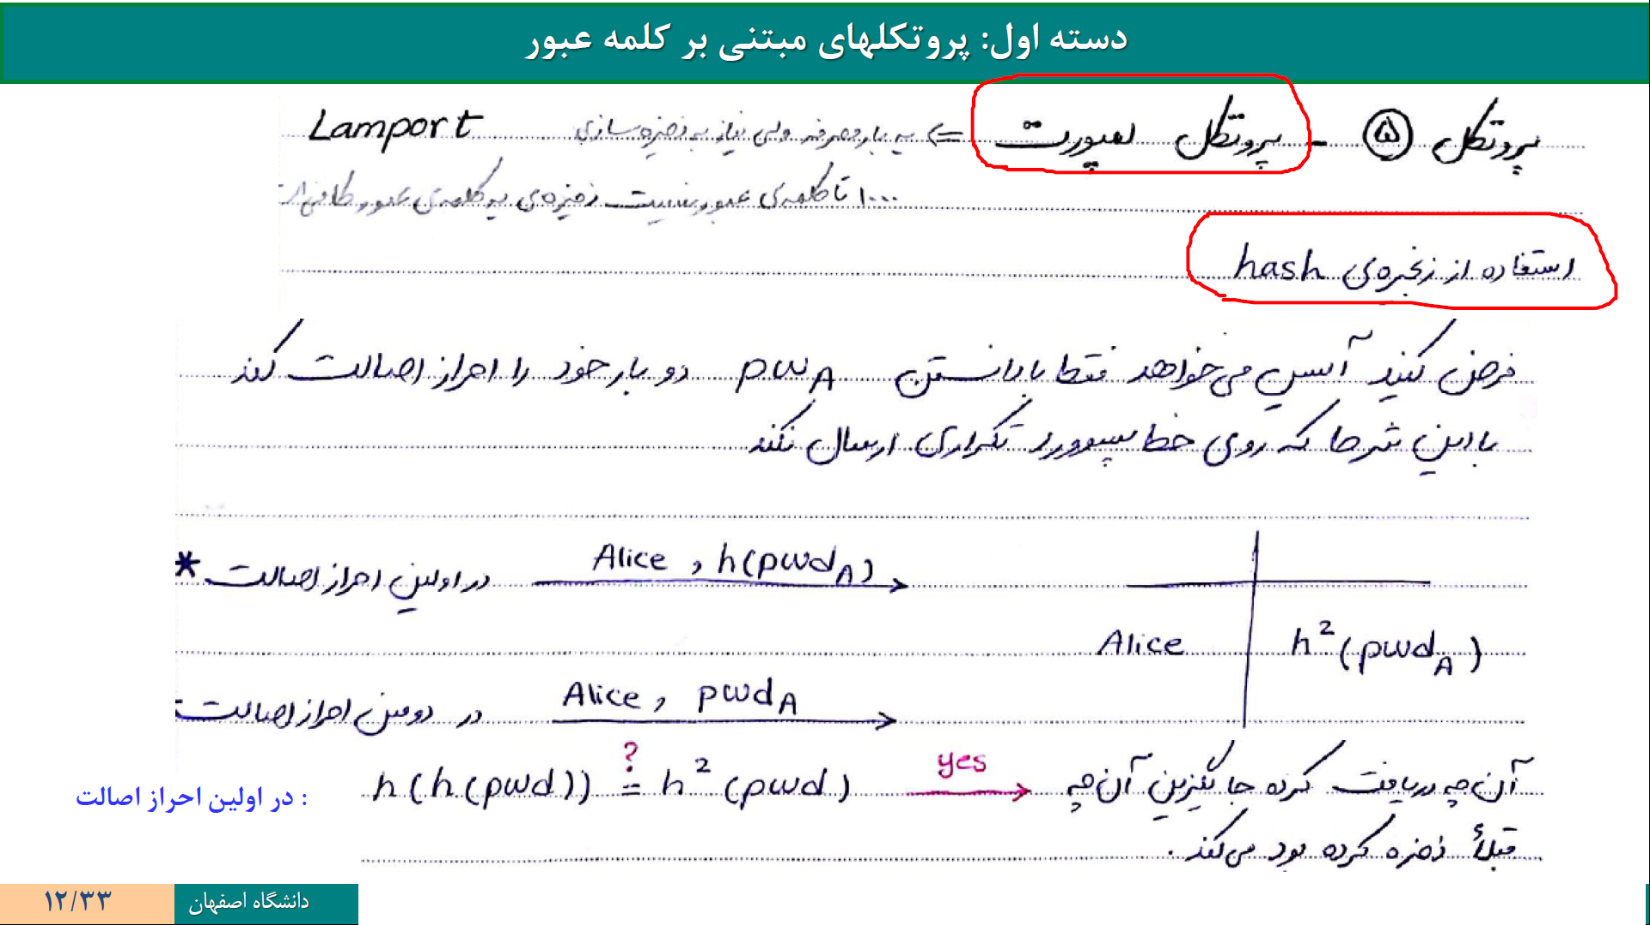 دسته اول: پروتکلهای مبتنی بر کلمه عبور
پروتکل ۵ - پروتکل لمپورت <= یه بار مصرفه ولی نیاز به ذخیره سازی Lamport
۱۰۰۰ تا کلمه‌ی عبور نیست ذخیره‌ی یه کلمه‌ی عبور کافی است
استفاده از زنجیره‌ی hash
فرض کنید آلیس می‌خواهد فقط با دانستن pwA دو بار خود را احراز اصالت کند
با این شرط که روی خط پسوورد تکراری ارسال نکند
* در اولین احراز اصالت Alice , h(pwdA)
Alice h²(pwdA)
در دومین احراز اصالت Alice , pwdA
در اولین احراز اصالت : h(h(pwd)) ?= h²(pwd) yes آن چه دریافت کرده جایگزین آن چه
قبلاً ذخیره کرده بود می‌کند .
دانشگاه اصفهان
۱۲/۳۳